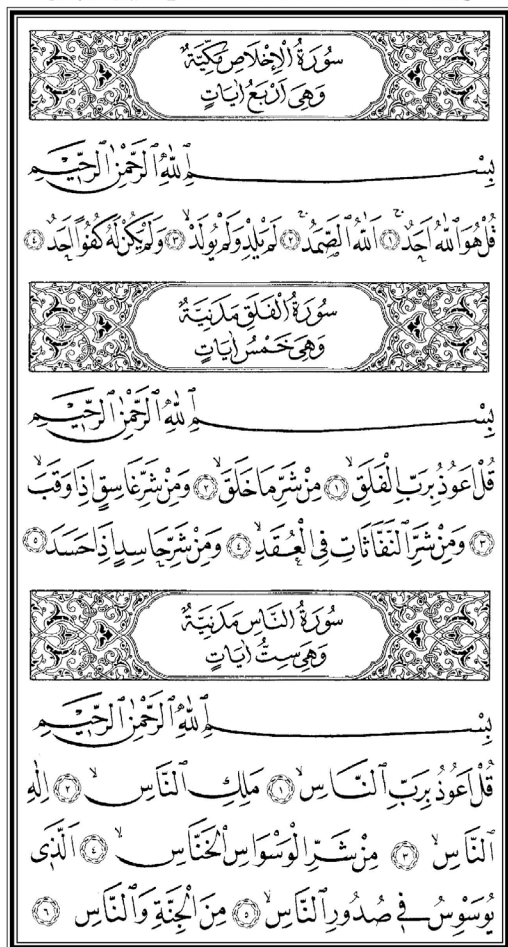 سُورَةُ الْاِخْلَاصِ مَكِّيَّةٌ
وَهِيَ اَرْبَعُ اٰيَاتٍ
بِسْمِ اللّٰهِ الرَّحْمٰنِ الرَّحٖيمِ
قُلْ هُوَ اللّٰهُ اَحَدٌۚ ﴿١﴾ اَللّٰهُ الصَّمَدُۚ ﴿٢﴾ لَمْ يَلِدْ وَلَمْ يُولَدْۙ ﴿٣﴾ وَلَمْ يَكُنْ لَهُ كُفُوًا اَحَدٌ ﴿٤﴾
سُورَةُ الْفَلَقِ مَدَنِيَّةٌ
وَهِيَ خَمْسُ اٰيَاتٍ
بِسْمِ اللّٰهِ الرَّحْمٰنِ الرَّحٖيمِ
قُلْ اَعُوذُ بِرَبِّ الْفَلَقِۙ ﴿١﴾ مِنْ شَرِّ مَا خَلَقَۙ ﴿٢﴾ وَمِنْ شَرِّ غَاسِقٍ اِذَا وَقَبَۙ
﴿٣﴾ وَمِنْ شَرِّ النَّفَّاثَاتِ فِي الْعُقَدِۙ ﴿٤﴾ وَمِنْ شَرِّ حَاسِدٍ اِذَا حَسَدَ ﴿٥﴾
سُورَةُ النَّاسِ مَدَنِيَّةٌ
وَهِيَ سِتُّ اٰيَاتٍ
بِسْمِ اللّٰهِ الرَّحْمٰنِ الرَّحٖيمِ
قُلْ اَعُوذُ بِرَبِّ النَّاسِۙ ﴿١﴾ مَلِكِ النَّاسِۙ ﴿٢﴾ اِلٰهِ
النَّاسِۙ ﴿٣﴾ مِنْ شَرِّ الْوَسْوَاسِ الْخَنَّاسِۙ ﴿٤﴾ اَلَّذٖي
يُوَسْوِسُ فٖي صُدُورِ النَّاسِۙ ﴿٥﴾ مِنَ الْجِنَّةِ وَالنَّاسِ ﴿٦﴾